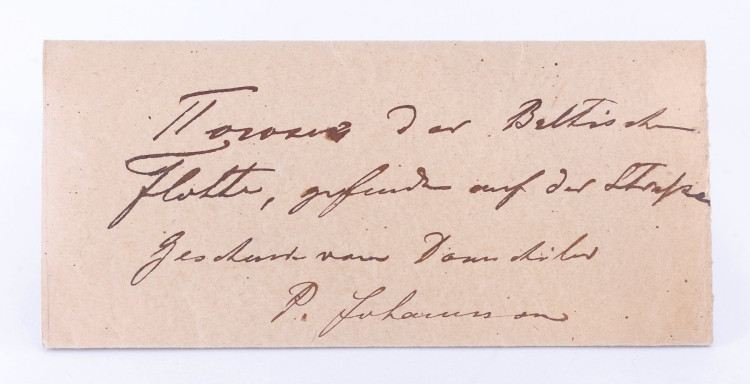 Погоны der Baltischen
Flotte, gefunden auf der Strasse
Geschenk vom Domschüler
P. Johannson